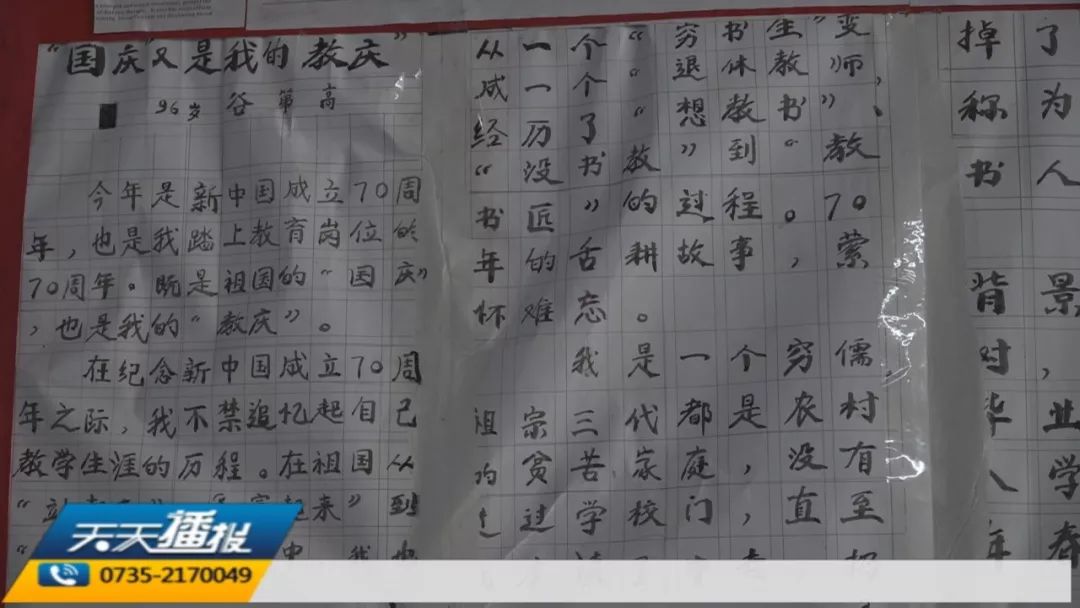 "国庆"又是我的教庆"
96岁 谷第高
今年是新中国成立70周
年，也是我踏上教育岗位的
70周年。既是祖国的“国庆”
，也是我的“教庆”。
在纪念新中国成立70周
年之际，我不禁追忆起自己
教学生涯的历程。在祖国从
起来”到
从一个“穷书生”变
成一个“退休教师，
经历了“想教书”、
“没书教”到“教
书匠”的过程。70
年的舌耕故事，萦
怀难忘。
我是一个穷儒，
祖宗三代都是农村
的贫苦家庭，没有
过学校门，直至
掉了
称为
书人
背景
对，
毕业
学
春
天天播报
0735-2170049